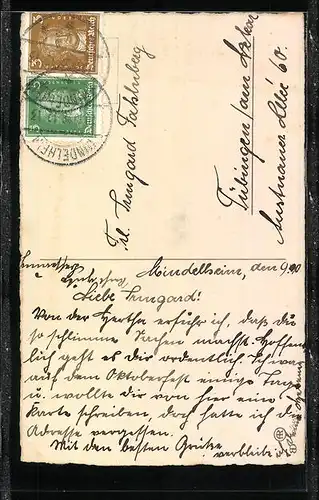 3
Deutsches Reich
5
Deutsches Reich
MINDELHEIM
Frl. Irmgard
Tübingen am Neckar
60.
Mindelheim, den 9.
Liebe Irmgard!
Von der Hertha erfuhr ich, daß du
so schlimme Sachen machst. Hoffent
lich geht es dir ordentlich. Ich war
auf dem Oktoberfest einige Tage
u. wollte dir von hier eine
Karte schreiben, doch hatte ich die
Adresse vergessen.
Mit den besten Grüßen
verbleibe ich